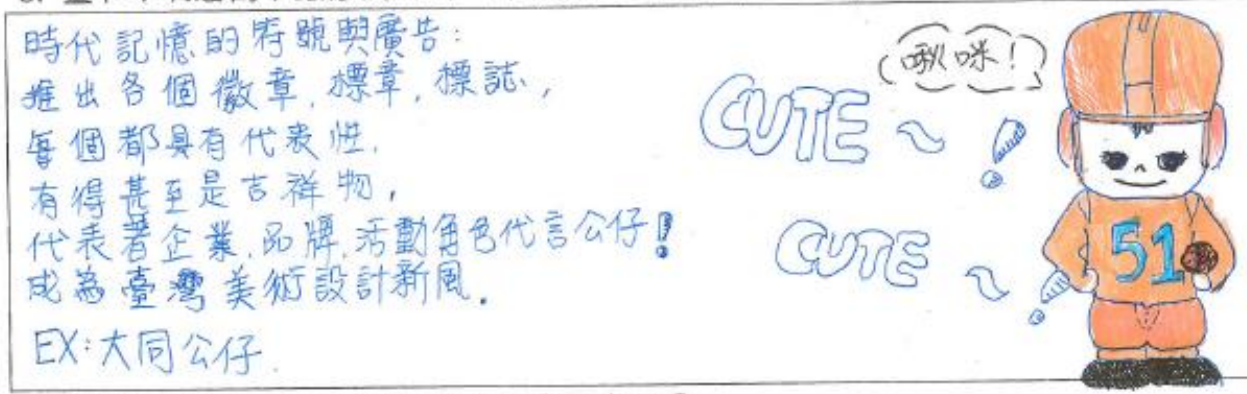 時代記憶的符號與廣告:
推出各個徽章,標章,標誌,
每個都具有代表性.
有得甚至是吉祥物,
代表著企業.品牌.活動角色代言公仔!
成為臺灣美術設計新風.
EX:大同公仔.
啾咪!
CUTE~!
CUTE~!
51